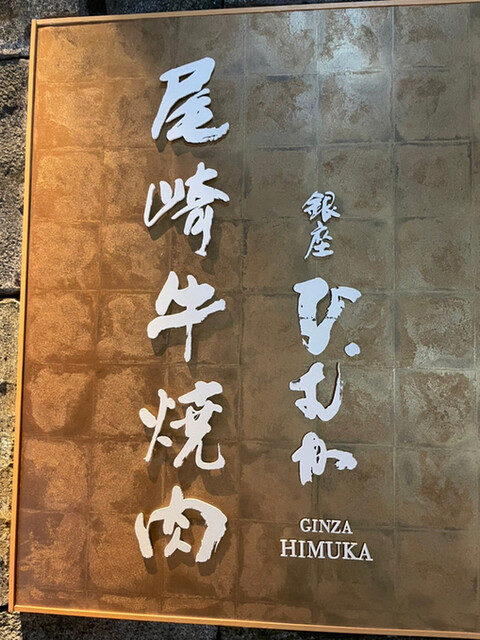 尾崎牛焼肉
銀座
ひむか
GINZA
HIMUKA